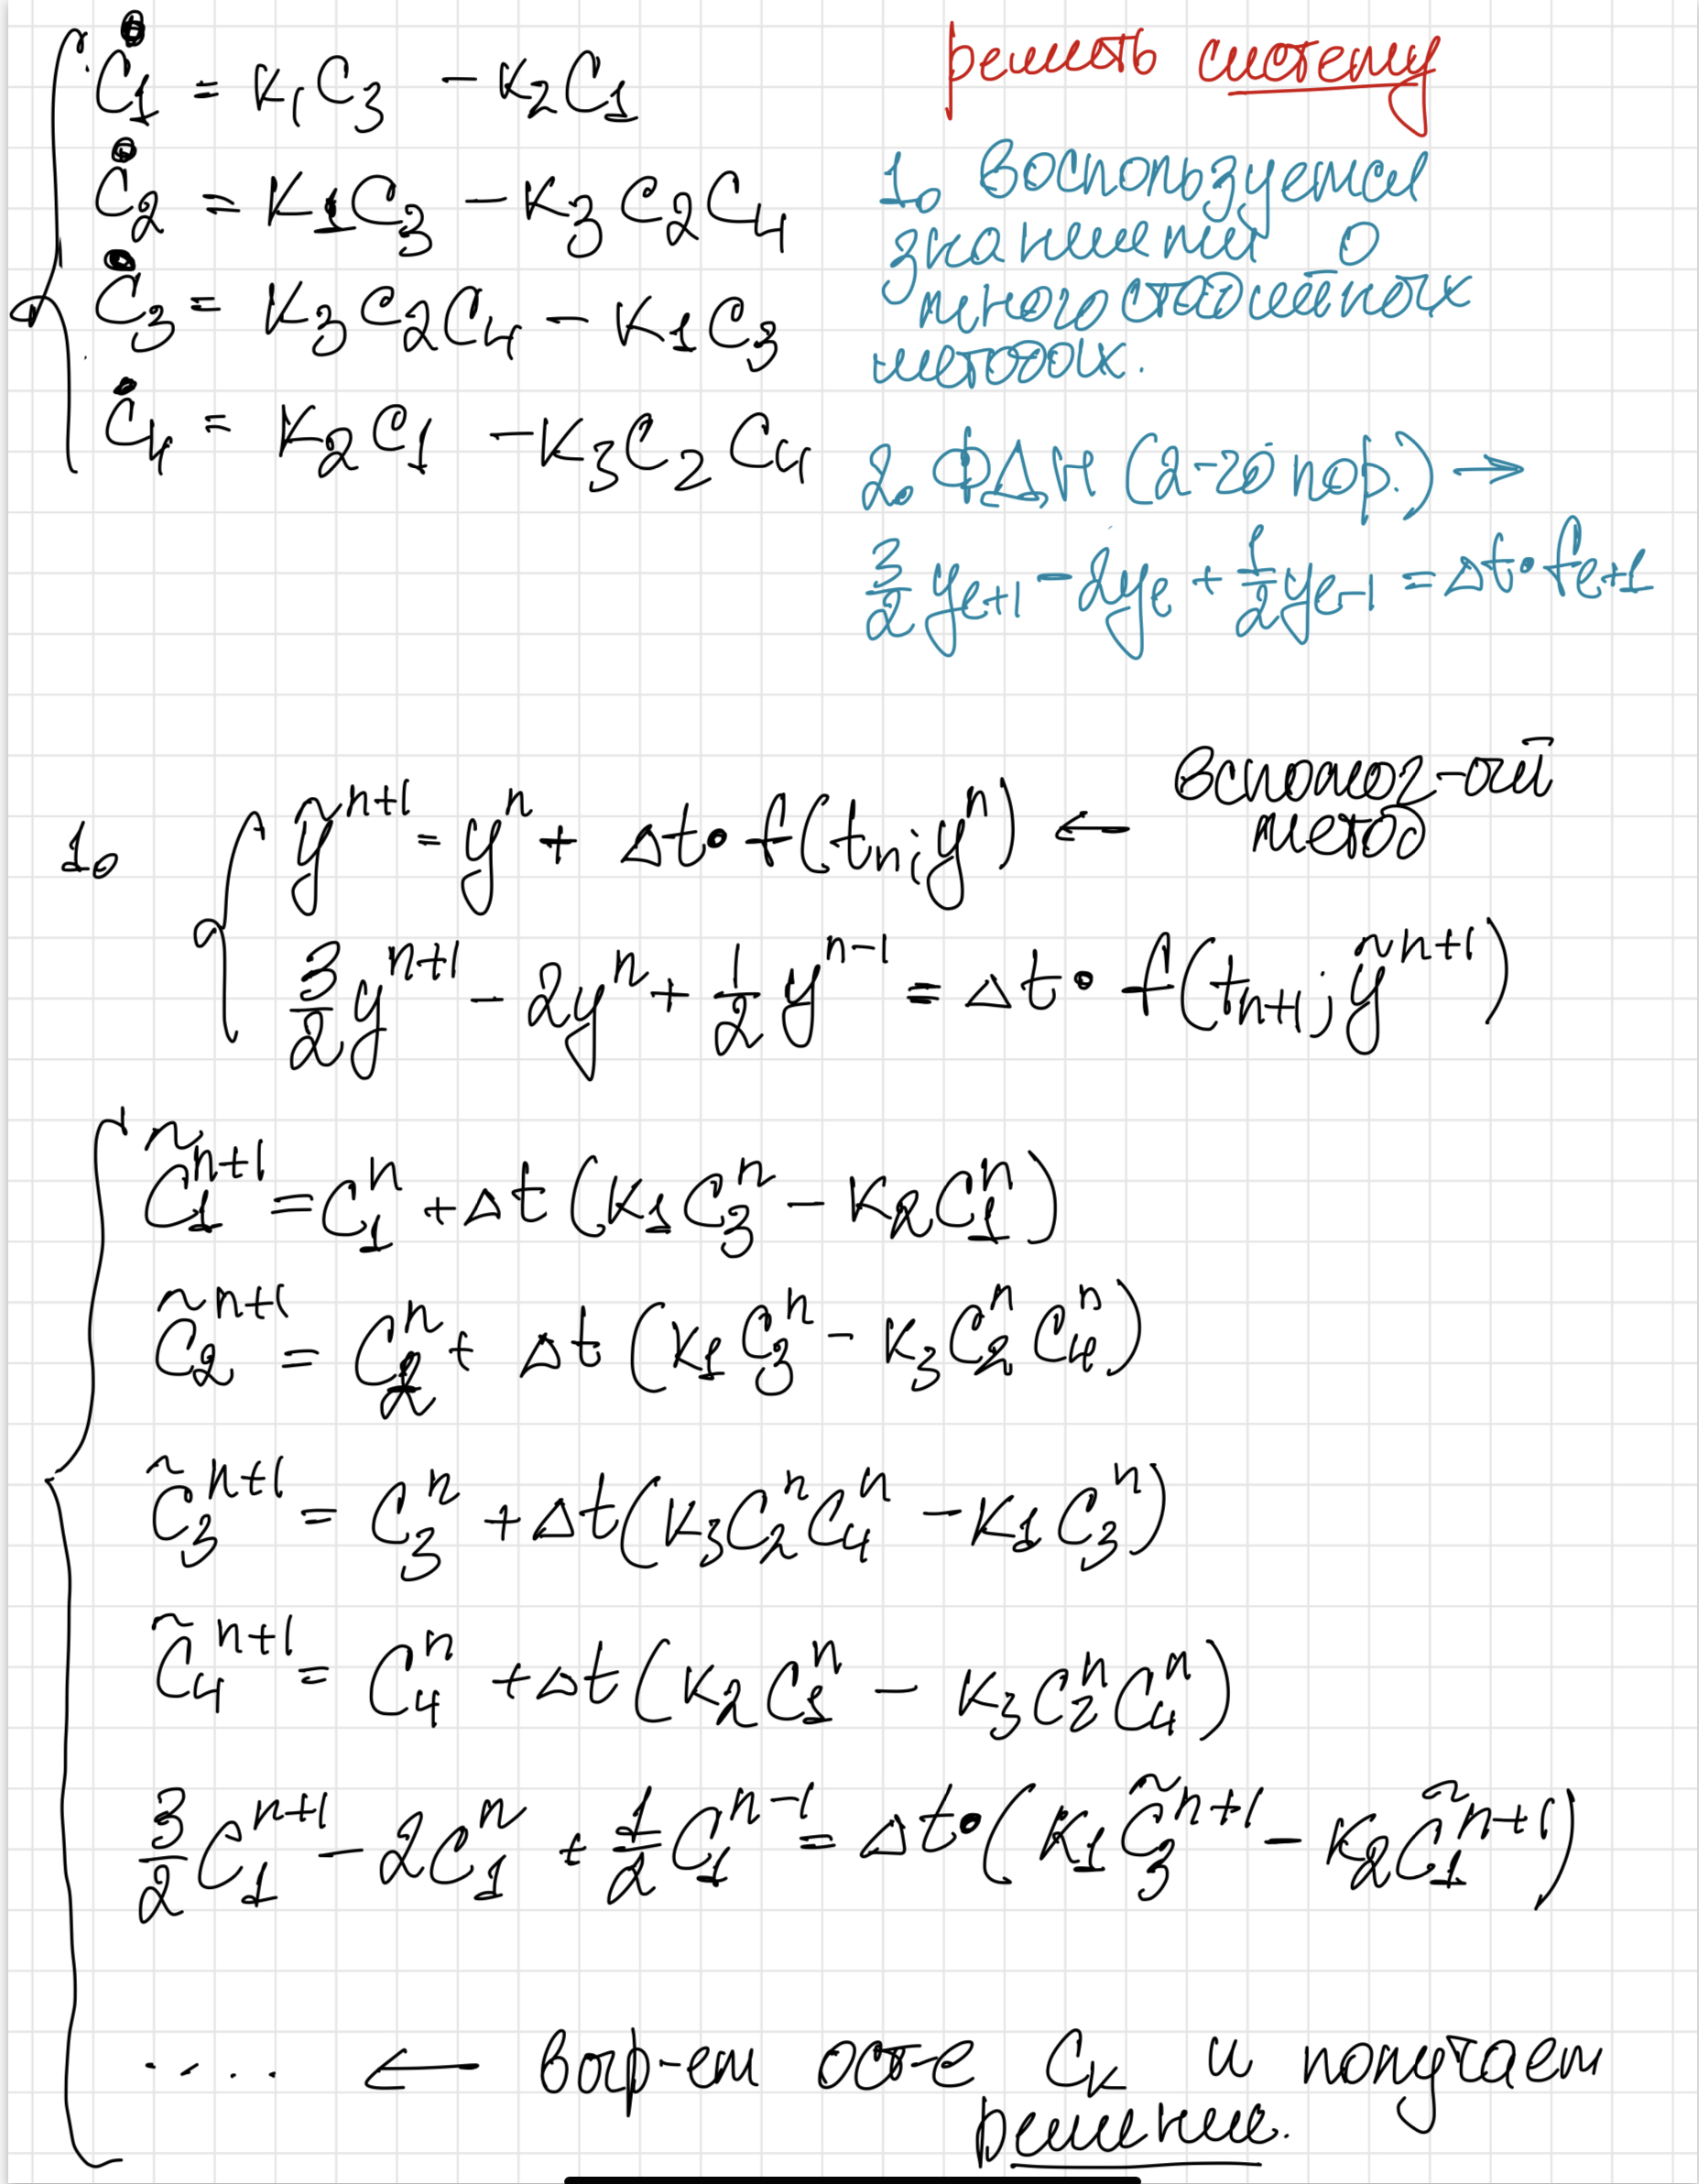 Ċ₁ = K₁C₃ − K₂C₁
Ċ₂ = K₁C₃ − K₃C₂C₄
Ċ₃ = K₃C₂C₄ − K₁C₃
Ċ₄ = K₂C₁ − K₃C₂C₄
решить систему
1. Воспользуемся
знанием о
многошаговых
методах.
2. ФДН (2-го пор.) →
3/2 yₑ₊₁ − 2yₑ + 1/2 yₑ₋₁ = Δt·fₑ₊₁
1. ỹⁿ⁺¹ = yⁿ + Δt·f(tₙ; yⁿ) ← вспомог-ый
метод
3/2 yⁿ⁺¹ − 2yⁿ + 1/2 yⁿ⁻¹ = Δt·f(tₙ₊₁; ỹⁿ⁺¹)
C̃₁ⁿ⁺¹ = C₁ⁿ + Δt(K₁C₃ⁿ − K₂C₁ⁿ)
C̃₂ⁿ⁺¹ = C₂ⁿ + Δt(K₁C₃ⁿ − K₃C₂ⁿC₄ⁿ)
C̃₃ⁿ⁺¹ = C₃ⁿ + Δt(K₃C₂ⁿC₄ⁿ − K₁C₃ⁿ)
C̃₄ⁿ⁺¹ = C₄ⁿ + Δt(K₂C₁ⁿ − K₃C₂ⁿC₄ⁿ)
3/2 C₁ⁿ⁺¹ − 2C₁ⁿ + 1/2 C₁ⁿ⁻¹ = Δt·(K₁C̃₃ⁿ⁺¹ − K₂C̃₁ⁿ⁺¹)
.... ← Cₖ и получаем
решение.